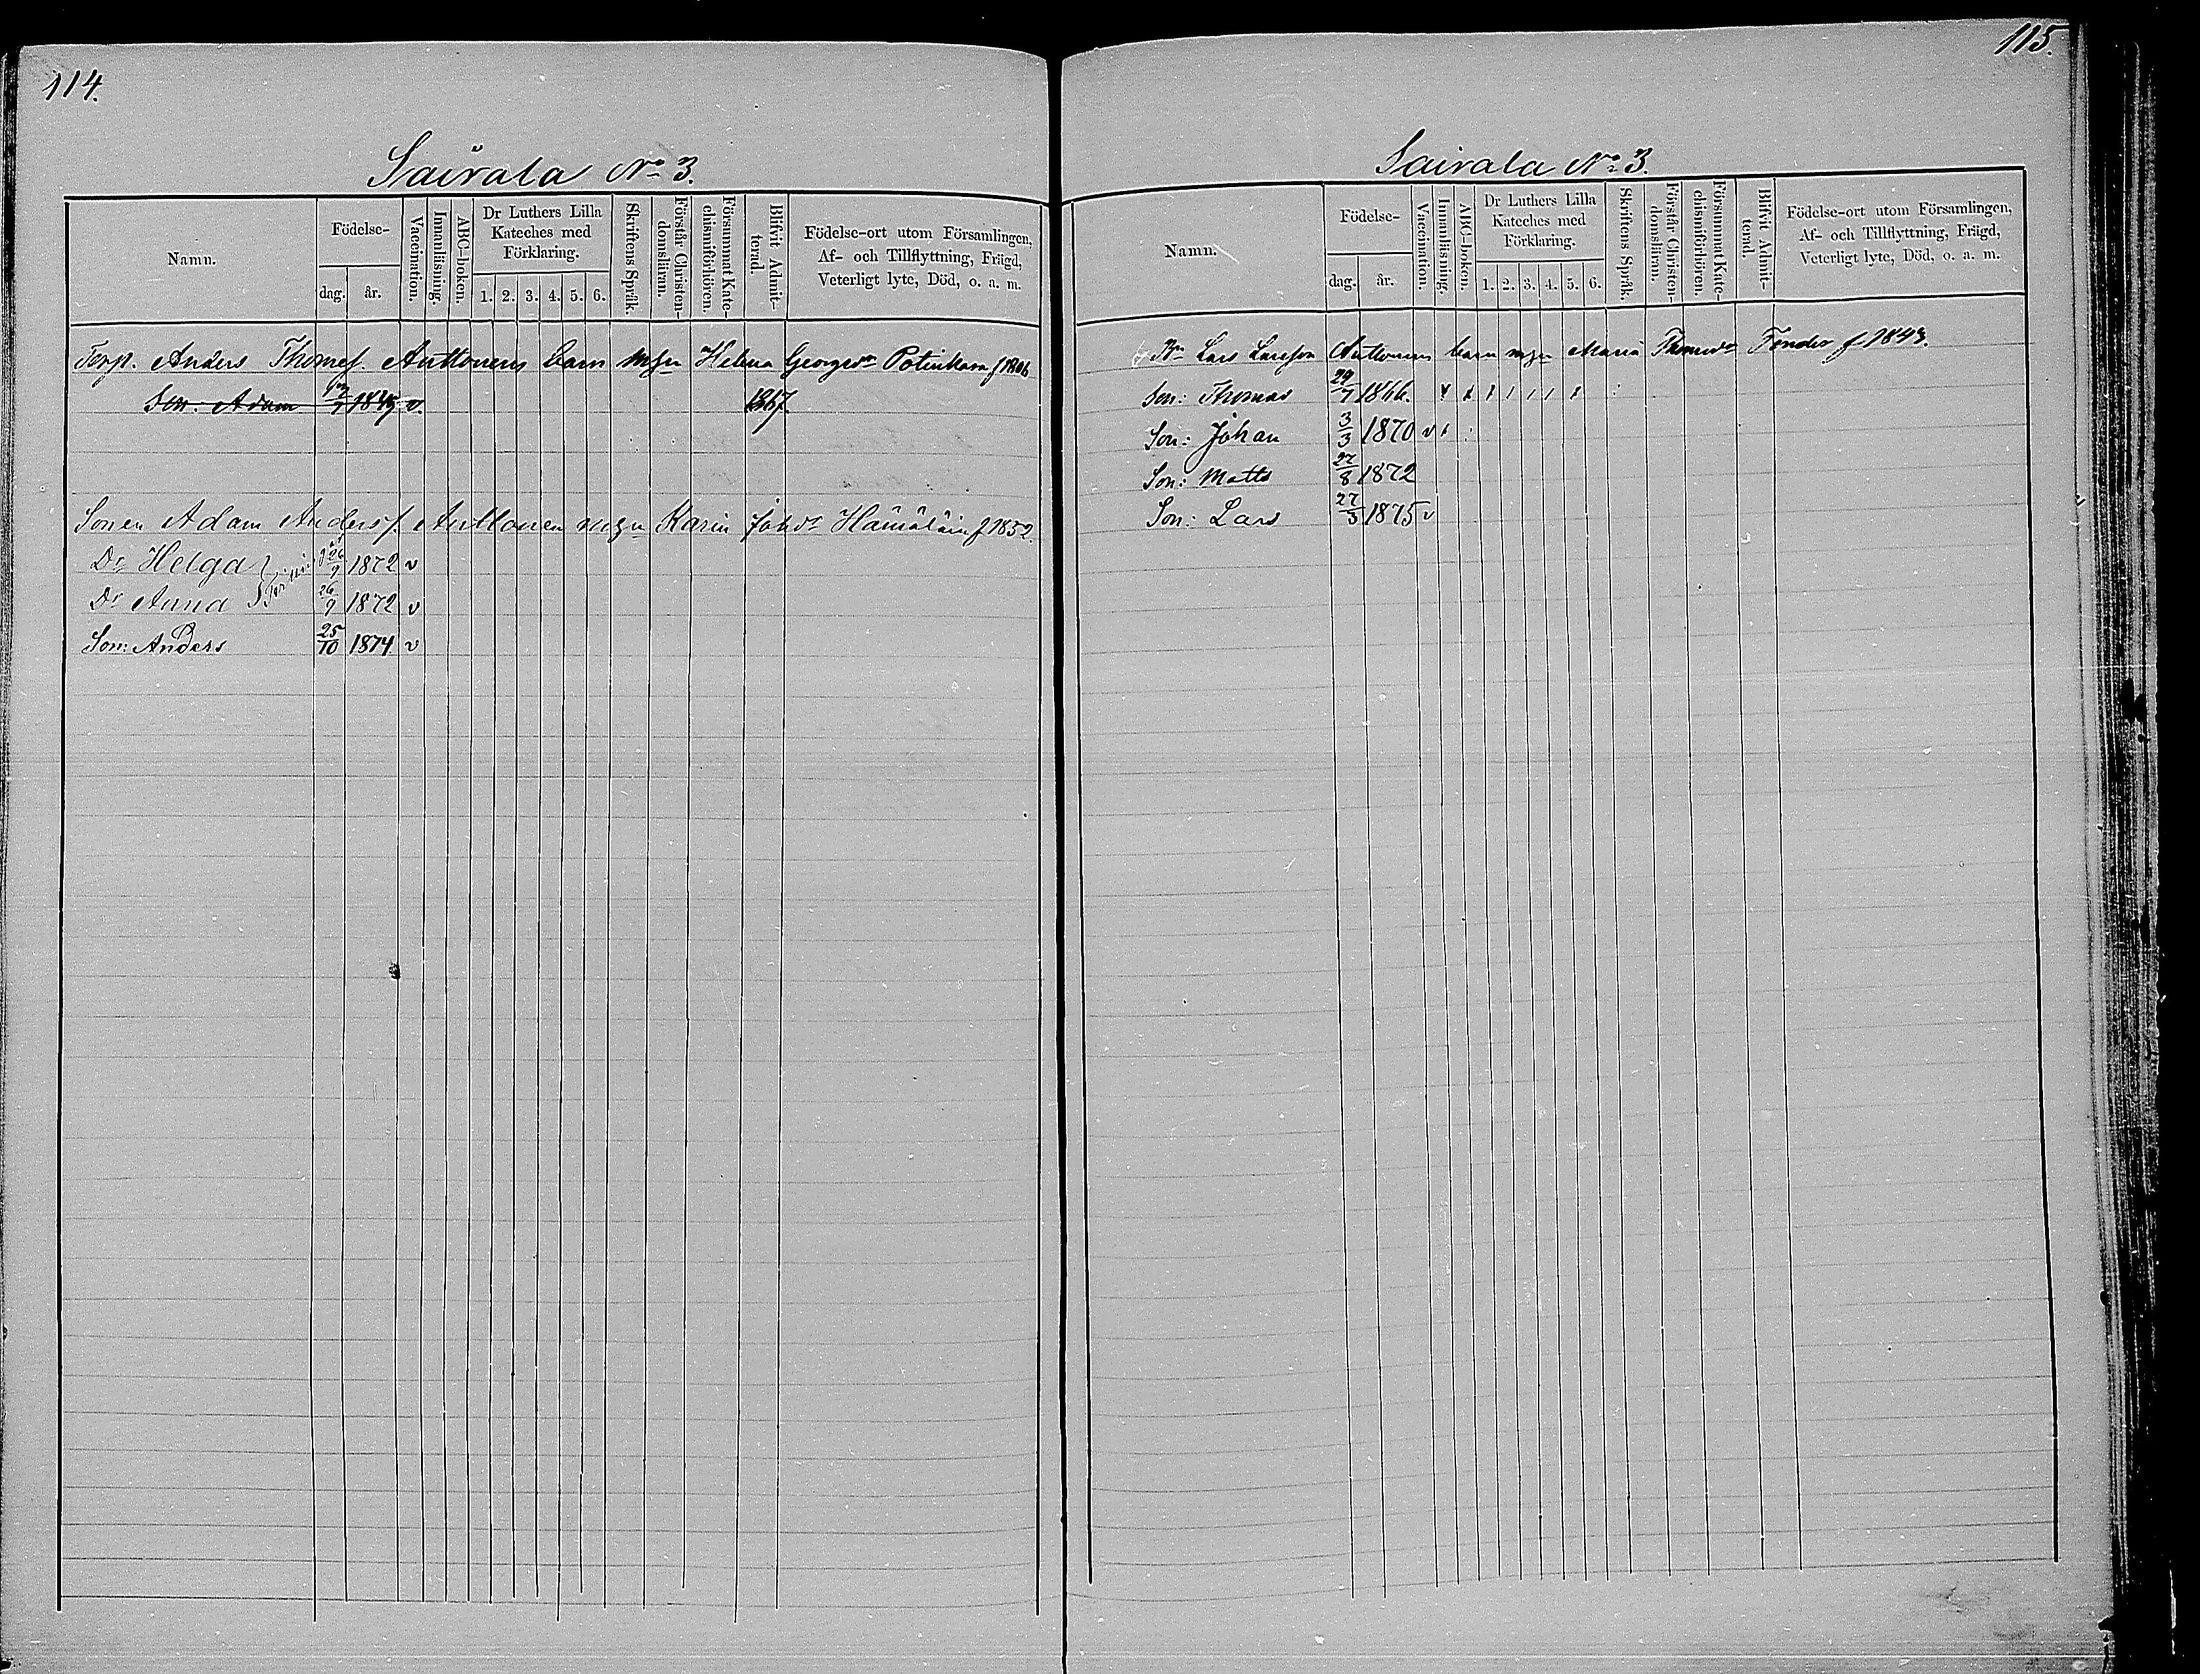 114.
Sairala No 3.
Namn.
Födelse-
dag.
år.
Vaccination.
Innanläsning.
ABC-boken.
Dr Luthers Lilla
Kateches med
Förklaring.
1. 2. 3. 4. 5. 6.
Skriftens Språk.
Förstår Christen-
domsläran.
Försummat Kate-
chismiförhören.
Blifvit Admit-
terad.
Födelse-ort utom Församlingen,
Af- och Tillflyttning, Frägd,
Veterligt lyte, Död, o. a. m.
Torp. Anders Thomef. Anttonens barn m Helena Georgsdr f 1806
Son: Adam 1849 v 1867.
Sonen Adam Andersf. Anttonen Karin Johdr Hämäläin f 1852.
Dr Helga 26/9 1872 v
Dr Anna 26/9 1872 v
Son: Anders 25/10 1874 v
115.
Sairala No 3.
Namn.
Födelse-
dag.
år.
Vaccination.
Innanläsning.
ABC-boken.
Dr Luthers Lilla
Kateches med
Förklaring.
1. 2. 3. 4. 5. 6.
Skriftens Språk.
Förstår Christen-
domsläran.
Försummat Kate-
chismiförhören.
Blifvit Admit-
terad.
Födelse-ort utom Församlingen,
Af- och Tillflyttning, Frägd,
Veterligt lyte, Död, o. a. m.
Bn Lars Larsson Anttonens barn Maria Thomædr Tonder f 1843.
Son: Thomas 29/7 1866.
Son: Johan 3/3 1870 v
Son: Matts 27/8 1872
Son: Lars 27/3 1875 v